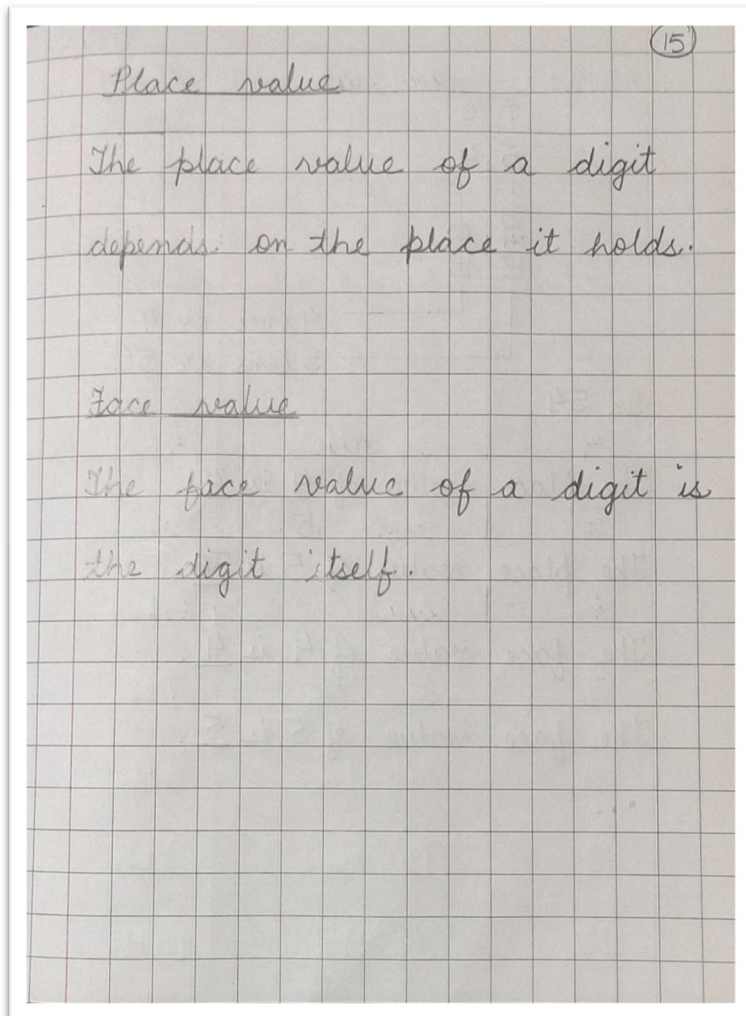 15
Place value
The place value of a digit
depends on the place it holds.
Face value
The face value of a digit is
the digit itself.